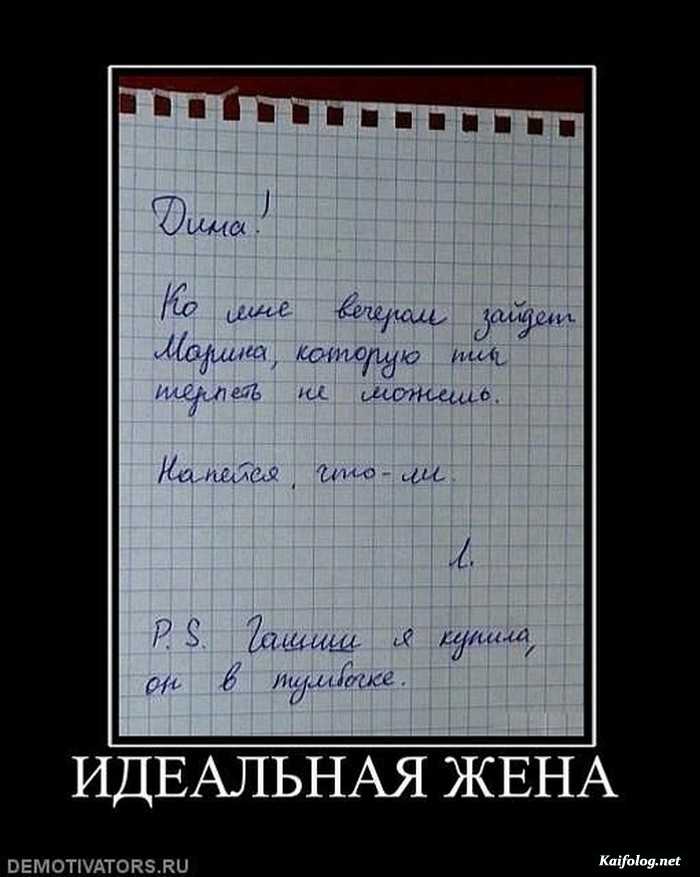 Дима!
Ко мне вечером зайдет
Марина, которую ты
терпеть не можешь.
Напейся, что-ли.
Л.
P.S. Гашиш я купила,
он в тумбочке.
ИДЕАЛЬНАЯ ЖЕНА
DEMOTIVATORS.RU
Kaifolog.net